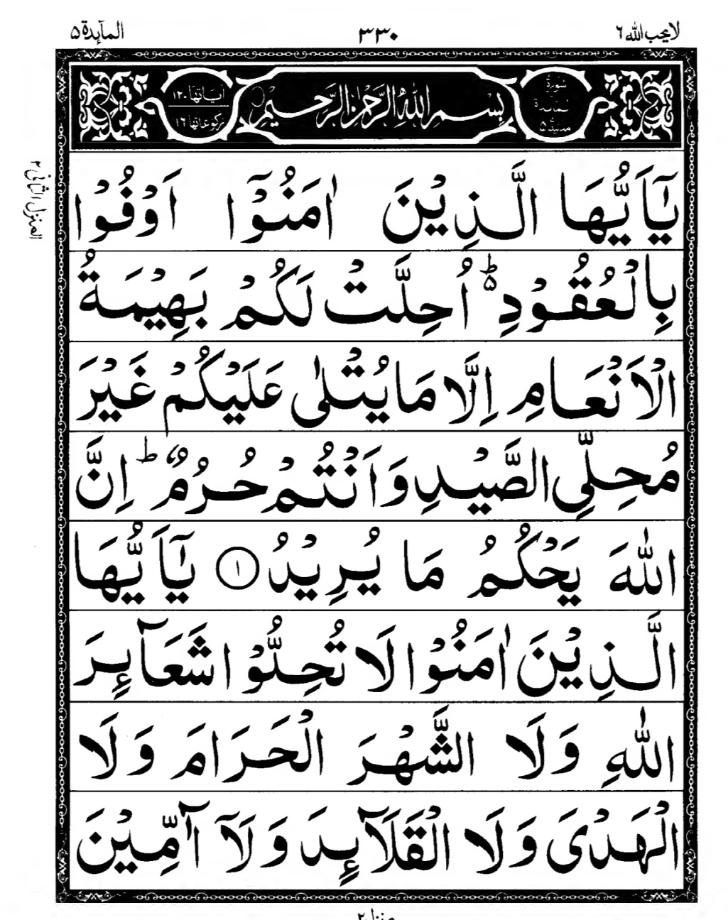 لایحب الله ٦
٣٣٠
المآىدة ٥
سورة
مدنية ٥
بسم الله الرحمن الرحيم
اياتها ١٢٠
ركوعاتها ١٦
المنزل الثانى ٢
يٰٓاَيُّهَا الَّذِيْنَ اٰمَنُوْٓا اَوْفُوْا
بِالْعُقُوْدِ ؕ۬ اُحِلَّتْ لَكُمْ بَهِيْمَةُ
الْاَنْعَامِ اِلَّا مَا يُتْلٰى عَلَيْكُمْ غَيْرَ
مُحِلِّى الصَّيْدِ وَاَنْتُمْ حُرُمٌ ؕ اِنَّ
اللّٰهَ يَحْكُمُ مَا يُرِيْدُ ١ يٰٓاَيُّهَا
الَّذِيْنَ اٰمَنُوْا لَا تُحِلُّوْا شَعَآئِرَ
اللّٰهِ وَلَا الشَّهْرَ الْحَرَامَ وَلَا
الْهَدْىَ وَلَا الْقَلَآئِدَ وَلَآ آٰمِّيْنَ
منزل ٢